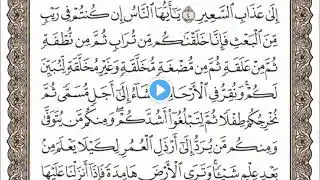 إِلَىٰ عَذَابِ ٱلسَّعِيرِ ٤ يَٰٓأَيُّهَا ٱلنَّاسُ إِن كُنتُمْ فِى رَيْبٍ
مِّنَ ٱلْبَعْثِ فَإِنَّا خَلَقْنَٰكُم مِّن تُرَابٍ ثُمَّ مِن نُّطْفَةٍ
ثُمَّ مِنْ عَلَقَةٍ ثُمَّ مِن مُّضْغَةٍ مُّخَلَّقَةٍ وَغَيْرِ مُخَلَّقَةٍ لِّنُبَيِّنَ
لَكُمْ وَنُقِرُّ فِى ٱلْأَرْحَامِ نَشَآءُ إِلَىٰٓ أَجَلٍ مُّسَمًّى ثُمَّ
نُخْرِجُكُمْ طِفْلًا ثُمَّ لِتَبْلُغُوٓا۟ أَشُدَّكُمْ وَمِنكُم مَّن يُتَوَفَّىٰ
وَمِنكُم مَّن يُرَدُّ إِلَىٰٓ أَرْذَلِ ٱلْعُمُرِ لِكَيْلَا يَعْلَمَ مِنۢ
بَعْدِ عِلْمٍ شَيْـًٔا وَتَرَى ٱلْأَرْضَ هَامِدَةً فَإِذَآ أَنزَلْنَا عَلَيْهَا